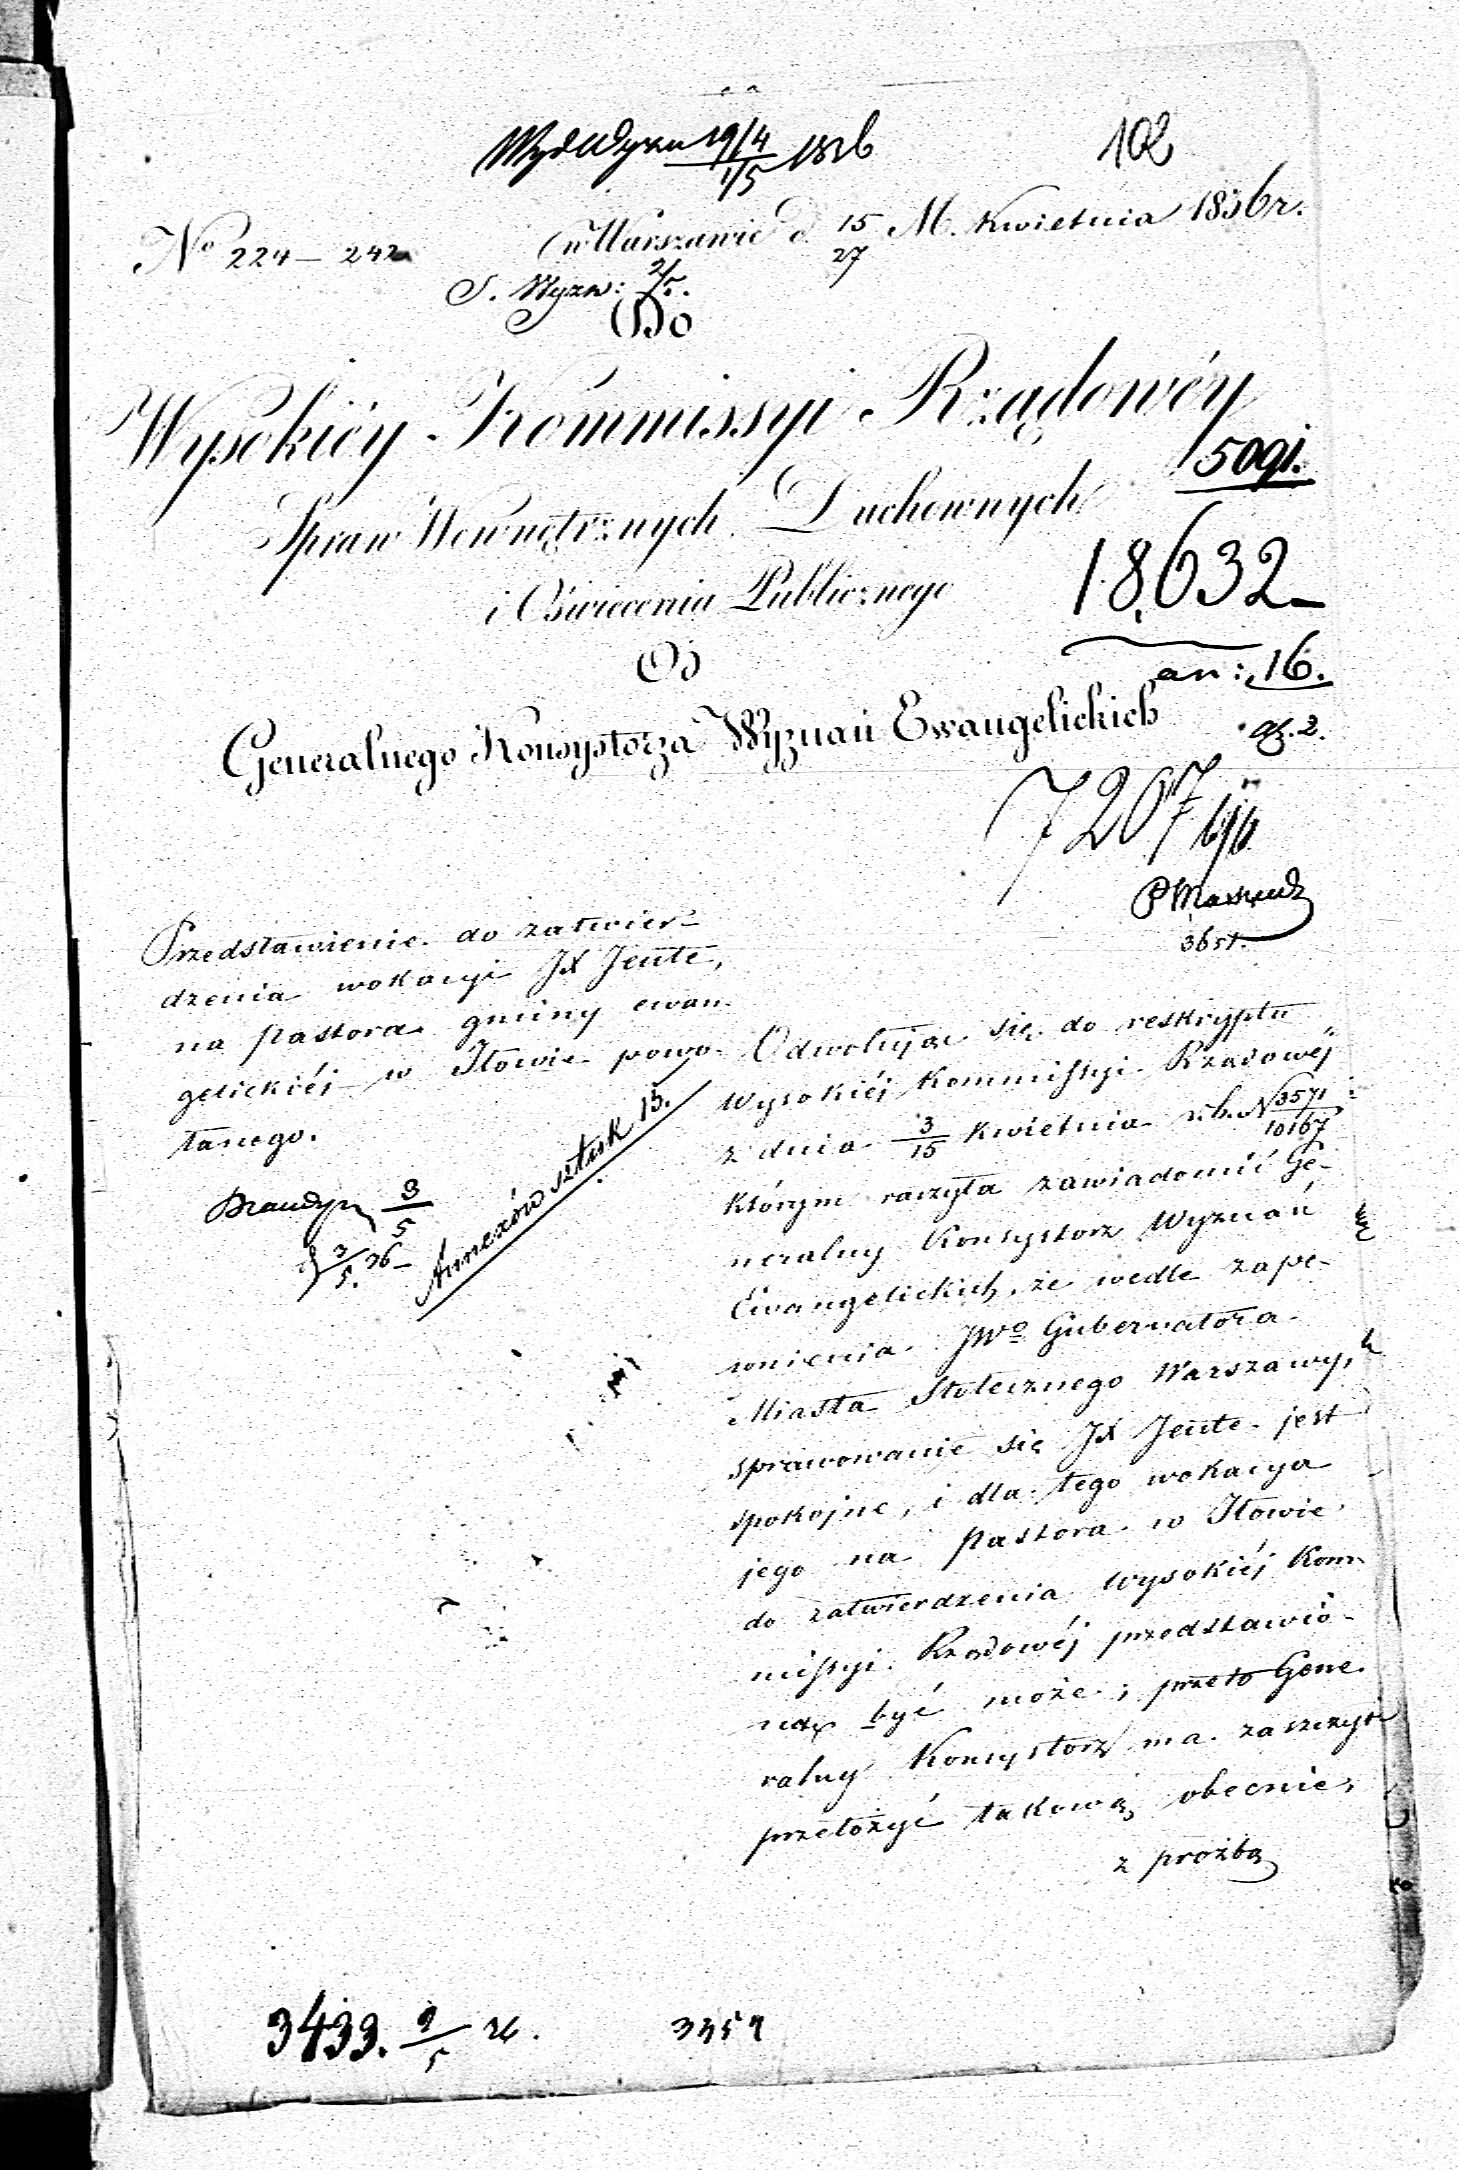 102
19/4 1/5 1836
w Warszawie d. 15/27 M. Kwietnia 1836 r.
No 224 – 242
S. Wyzn: 2/5.
Do
Wysokiéy Kommissyi Rządowéy
509
Spraw Wewnętrznych Duchownych
18,632
i Oświecenia Publicznego
an: 16.
Od
Generalnego Konsystorza Wyznań Ewangelickich
7207
Przedstawienie do zatwier-
dzenia wokacyi JX Jeute,
na pastora gminy ewan-
gelickiéj w Iłowie powo-
łanego.
3/5
3/5. 36
Annexów sztuk 15.
Odwołując się do reskryptu
Wysokiéj Kommissyi Rządowéj
z dnia 3/15 Kwietnia r.b. N 3571/10167
którym raczyła zawiadomić Ge-
neralny Konsystorz Wyznań
Ewangelickich, że wedle zape-
wnienia JWo Gubernatora
Miasta Stołecznego Warszawy,
sprawowanie się JX Jeute jest
spokojne, i dla tego wokacya
jego na pastora w Iłowie
do zatwierdzenia Wysokiéj Kom-
missyi Rządowéj przedstawio-
ną być może; przeto Gene-
ralny Konsystorz ma zaszczyt
przełożyć takową obecnie,
z prożbą
3433. 9/5 36.
3357